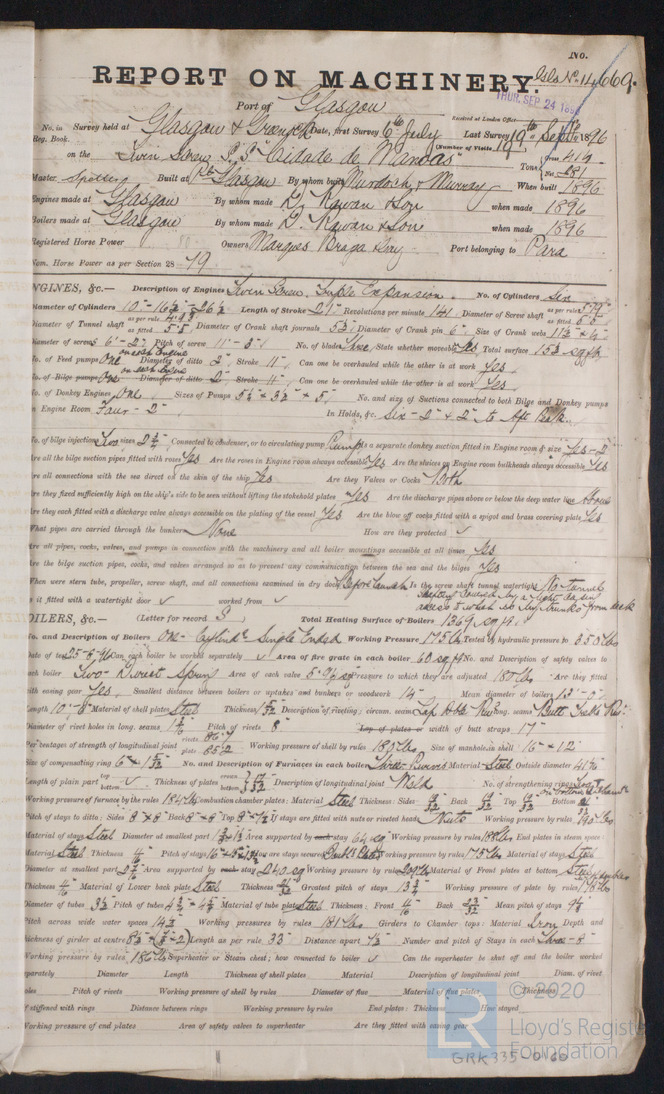 No.
REPORT ON MACHINERY. Gls No. 14669.
THUR. SEP. 24 189
Port of Glasgow
Received at London Office
No. in Survey held at Glasgow & Greenock Date, first Survey 6th July Last Survey 19th Sept 1896
Reg. Book. (Number of Visits 19)
on the Twin Screw S.S. "Cidade de Manaos" Tons Gross 414 Net 281
Master Built at Pt Glasgow By whom built Murdoch & Murray When built 1896
Engines made at Glasgow By whom made D. Rowan & Son when made 1896
Boilers made at Glasgow By whom made D. Rowan & Son when made 1896
Registered Horse Power Owners Marques Braga Port belonging to Para
Nom. Horse Power as per Section 28 79
ENGINES, &c.— Description of Engines Twin Screw. Triple Expansion. No. of Cylinders Six
Diameter of Cylinders 10"-16½"-26½" Length of Stroke 21" Revolutions per minute 141 Diameter of Screw shaft as per rule as fitted
Diameter of Tunnel shaft as per rule as fitted 5.5 Diameter of Crank shaft journals 5¾" Diameter of Crank pin 6" Size of Crank webs
Diameter of screw 6'-2" Pitch of screw 11'-3" No. of blades Three State whether moveable Yes Total surface 15½ sq ft
on each Engine
No. of Feed pumps One Diameter of ditto 2" Stroke 11" Can one be overhauled while the other is at work Yes
on each Engine
No. of Bilge pumps One Diameter of ditto 2" Stroke 11" Can one be overhauled while the other is at work Yes
No. of Donkey Engines One Sizes of Pumps 5¼" x 3½" x 5" No. and size of Suctions connected to both Bilge and Donkey pumps
In Engine Room Four - 2" In Holds, &c. Six - 2" & 2" to Aft Bulk.
No. of bilge injections Two sizes 2½" Connected to condenser, or to circulating pump Pump Is a separate donkey suction fitted in Engine room & size Yes - 2"
Are all the bilge suction pipes fitted with roses Yes Are the roses in Engine room always accessible Yes Are the sluices on Engine room bulkheads always accessible Yes
Are all connections with the sea direct on the skin of the ship Yes Are they Valves or Cocks Both
Are they fixed sufficiently high on the ship's side to be seen without lifting the stokehold plates Yes Are the discharge pipes above or below the deep water line Above
Are they each fitted with a discharge valve always accessible on the plating of the vessel Yes Are the blow off cocks fitted with a spigot and brass covering plate Yes
What pipes are carried through the bunkers None How are they protected ✓
Are all pipes, cocks, valves, and pumps in connection with the machinery and all boiler mountings accessible at all times Yes
Are the bilge suction pipes, cocks, and valves arranged so as to prevent any communication between the sea and the bilges Yes
When were stern tube, propeller, screw shaft, and all connections examined in dry dock Before launch Is the screw shaft tunnel watertight No tunnel
Is it fitted with a watertight door ✓ worked from ✓ trunks from deck
BOILERS, &c.— (Letter for record S) Total Heating Surface of Boilers 1369 sq ft.
No. and Description of Boilers One - Cylindl Single Ended Working Pressure 175 lbs Tested by hydraulic pressure to 350 lbs
Date of test 25-8-96 Can each boiler be worked separately ✓ Area of fire grate in each boiler 60 sq ft No. and Description of safety valves to
each boiler Two - Direct Spring Area of each valve Pressure to which they are adjusted 180 lbs Are they fitted
with easing gear Yes Smallest distance between boilers or uptakes and bunkers or woodwork 14" Mean diameter of boilers 13'-0"
Length 10'-3" Material of shell plates Steel Thickness Description of riveting: circum. seams Lap Dble Rivd long. seams Butt Treble Rivd
Diameter of rivet holes in long. seams Pitch of rivets 8" Lap of plates or width of butt straps 17"
Per centages of strength of longitudinal joint rivets 86.7 plate 85.2 Working pressure of shell by rules 180 lbs Size of manhole in shell 16" x 12"
Size of compensating ring No. and Description of Furnaces in each boiler Three Purves Material Steel Outside diameter
Length of plain part top bottom ✓ Thickness of plates crown bottom Description of longitudinal joint Weld No. of strengthening rings
Working pressure of furnace by the rules 184 lbs Combustion chamber plates: Material Steel Thickness: Sides Back Top Bottom
Pitch of stays to ditto: Sides 8" x 8" Back 8" x 8" Top If stays are fitted with nuts or riveted heads Nuts Working pressure by rules
Material of stays Steel Diameter at smallest part Area supported by each stay 64 sq Working pressure by rules 188 lbs End plates in steam space:
Material Steel Thickness Pitch of stays How are stays secured Working pressure by rules 175 lbs Material of stays Steel
Diameter at smallest part Area supported by each stay 240 sq Working pressure by rules Material of Front plates at bottom Steel
Thickness Material of Lower back plate Steel Thickness Greatest pitch of stays 13¾" Working pressure of plate by rules
Diameter of tubes 3½ Pitch of tubes Material of tube plates Steel Thickness: Front Back Mean pitch of stays
Pitch across wide water spaces 14½" Working pressures by rules 181 lbs Girders to Chamber tops: Material Iron Depth and
thickness of girder at centre Length as per rule 33" Distance apart Number and pitch of Stays in each Three - 8"
Working pressure by rules 186 lbs Superheater or Steam chest; how connected to boiler ✓ Can the superheater be shut off and the boiler worked
separately Diameter Length Thickness of shell plates Material Description of longitudinal joint Diam. of rivet
holes Pitch of rivets Working pressure of shell by rules Diameter of flue Material of flue plates Thickness
If stiffened with rings Distance between rings Working pressure by rules End plates: Thickness How stayed
Working pressure of end plates Area of safety valves to superheater Are they fitted with easing gear
© 2020
Lloyd's Register
Foundation
GRK335-0160